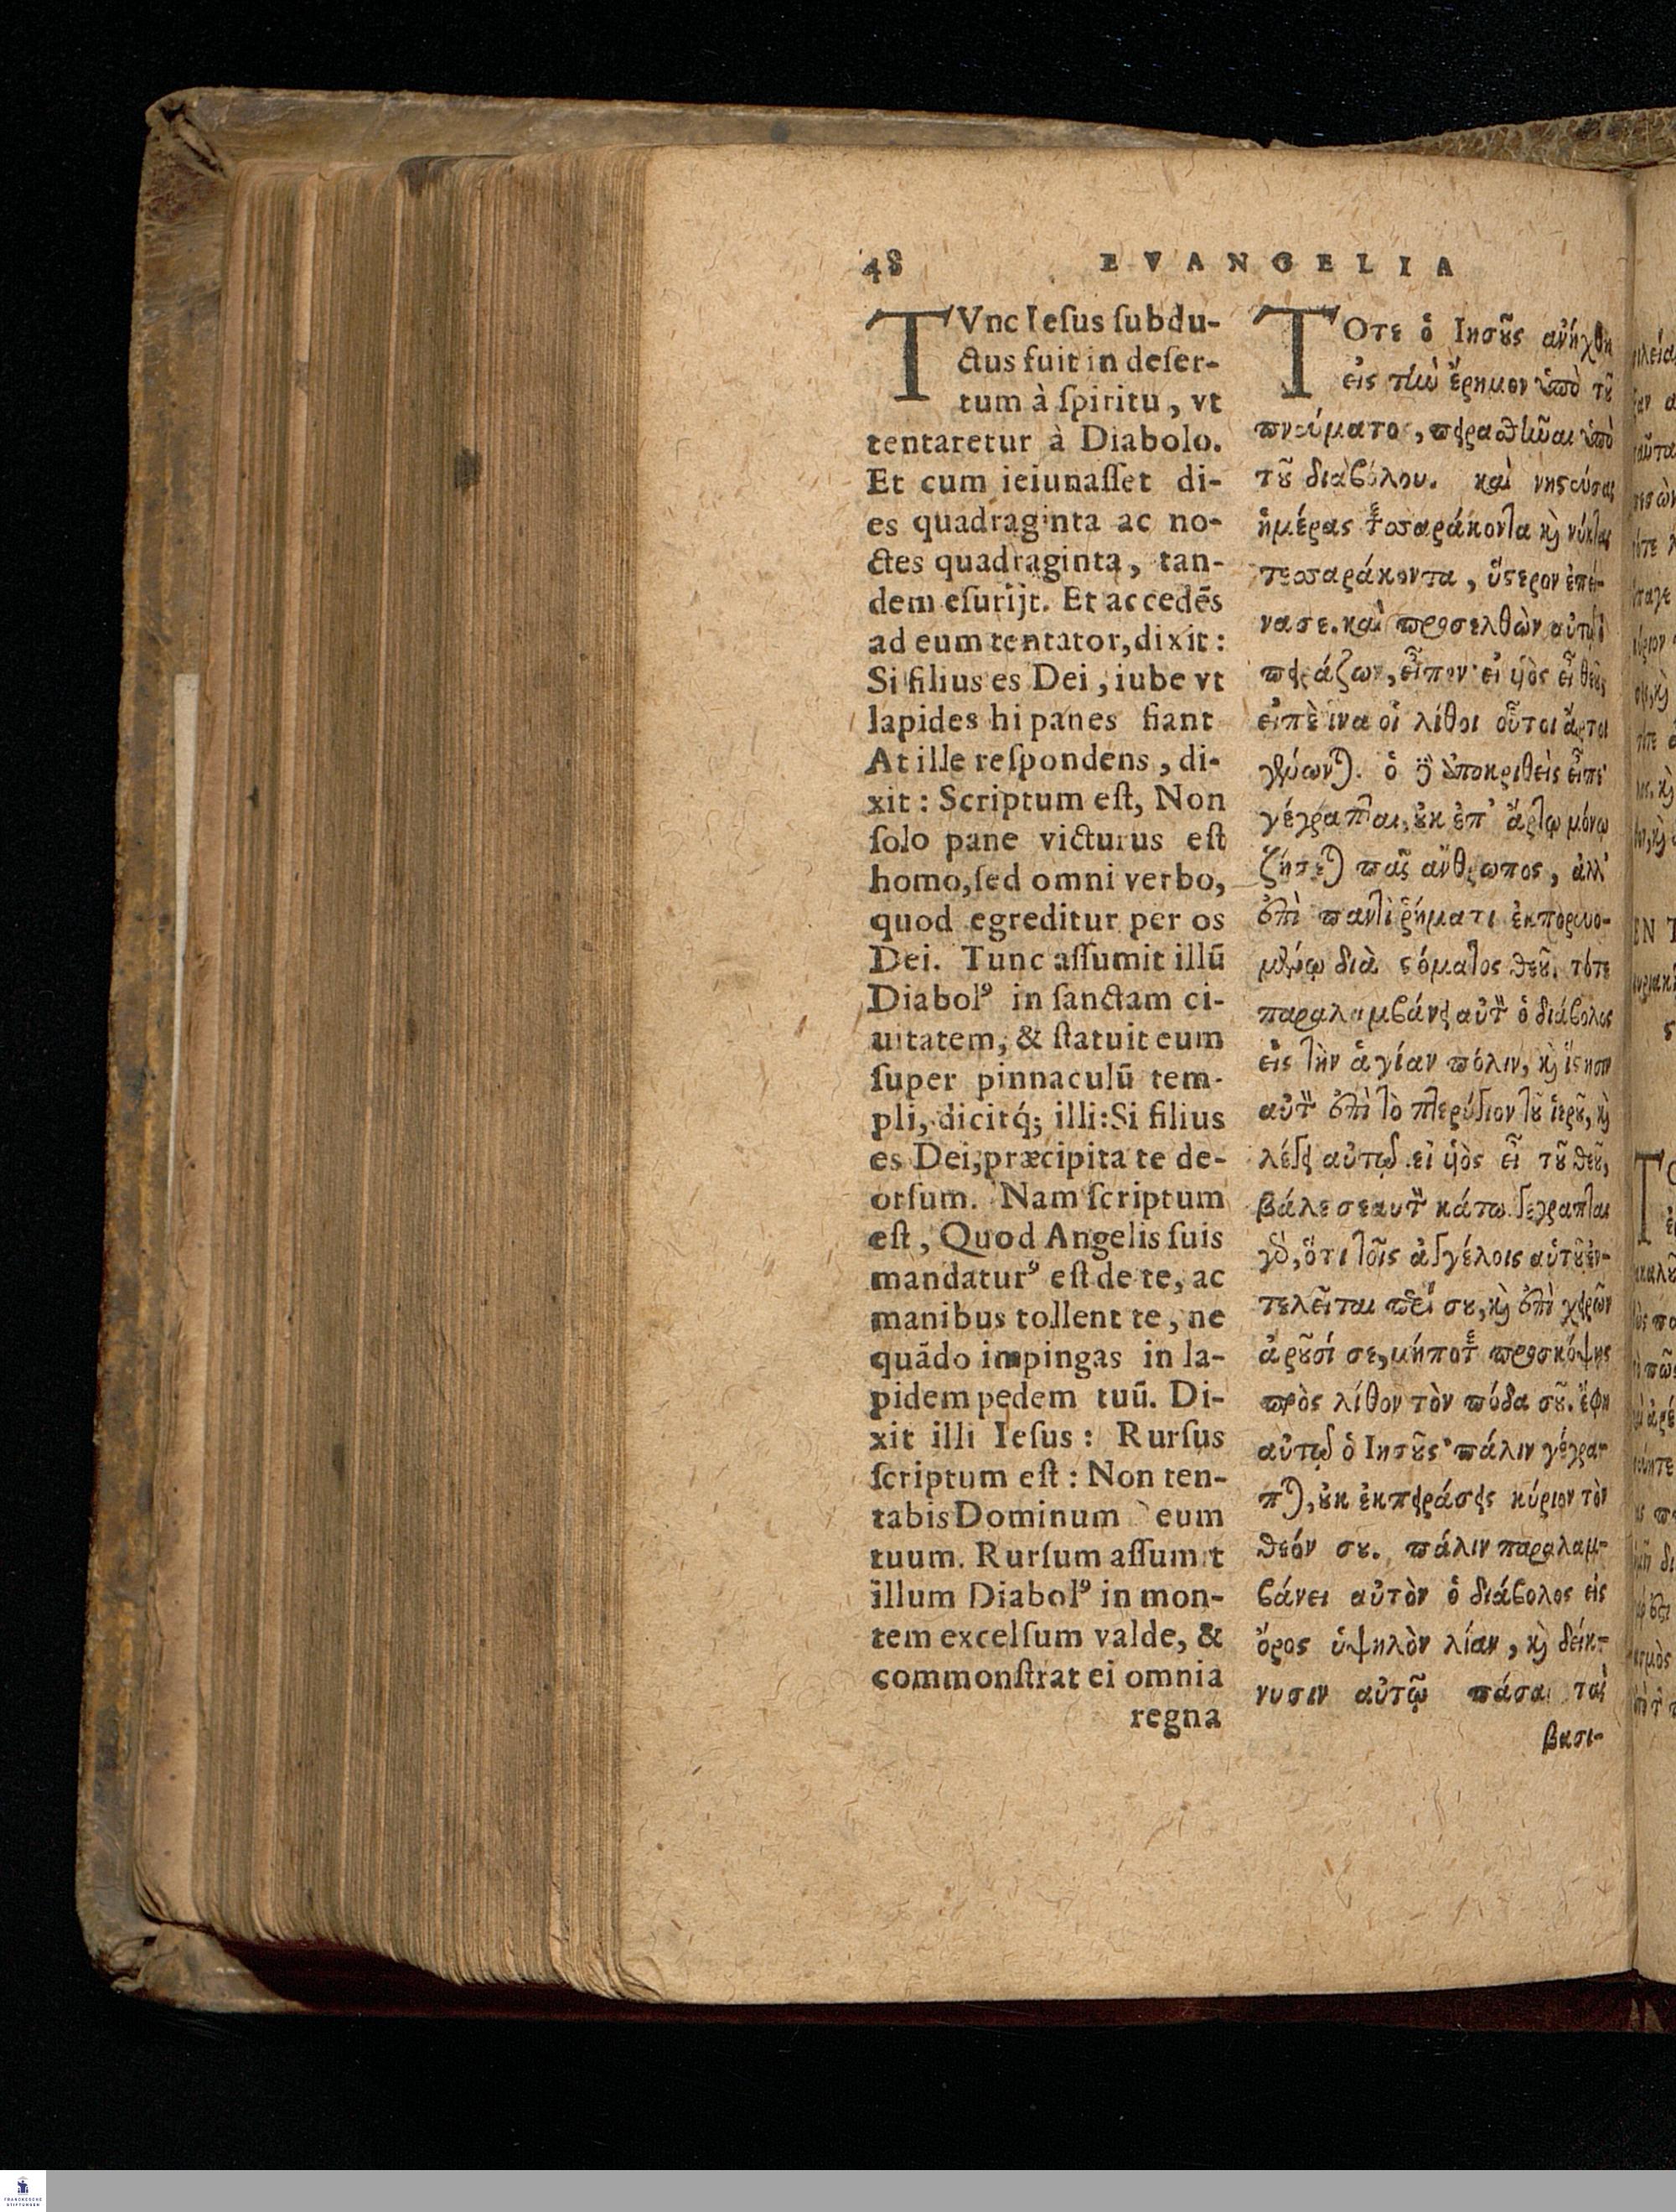 48 EVANGELIA
TVnc Iesus subdu-
ctus fuit in deser-
tum à spiritu, vt
tentaretur à Diabolo.
Et cum ieiunasset di-
es quadraginta ac no-
ctes quadraginta, tan-
dem esurijt. Et accedēs
ad eum tentator, dixit:
Si filius es Dei, iube vt
lapides hi panes fiant
At ille respondens, di-
xit: Scriptum est, Non
solo pane victurus est
homo, sed omni verbo,
quod egreditur per os
Dei. Tunc assumit illū
Diabolꝰ in sanctam ci-
uitatem, & statuit eum
super pinnaculū tem-
pli, dicitq́; illi: Si filius
es Dei, præcipita te de-
orsum. Nam scriptum
est, Quod Angelis suis
mandaturꝰ est de te, ac
manibus tollent te, ne
quādo impingas in la-
pidem pedem tuū. Di-
xit illi Iesus: Rursus
scriptum est: Non ten-
tabis Dominum eum
tuum. Rursum assumit
illum Diabolꝰ in mon-
tem excelsum valde, &
commonstrat ei omnia
regna
ΤΟτε ὁ Ιησȣ͂ς ανήχθη
εἰς τἰω ἔρημον ὑπὸ τȣ͂
πνεύματος, πειραθἰωαι ὑπὸ
τȣ͂ διαβόλου. καὶ νηστεύσας
ἡμέρας τεσσαράκοντα κὶ νύκτας
τεσσαράκοντα, ὕστερον ἐπεί-
νασε. καὶ προσελθὼν αὐτῷ ὁ
πειράζων, εἶπεν· εἰ ὑὸς εἶ θεȣ͂,
εἰπὲ ἵνα οἱ λίθοι οὗτοι ἄρτοι
γένωνται. ὁ δὲ ἀποκριθεὶς εἶπε·
γέγραπται, ȣκ ἐπ' ἄρτῳ μόνῳ
ζήσεται πᾶς ἄνθρωπος, ἀλλ'
ἐπὶ παντὶ ῥήματι ἐκπορευο-
μένῳ διὰ στόματος θεȣ͂. τότε
παραλαμβάνει αὐτὸν ὁ διάβολος
εἰς τὴν ἁγίαν πόλιν, κὶ ἵστησιν
αὐτὸν ἐπὶ τὸ πτερύγιον τȣ͂ ἱερȣ͂, κὶ
λέγει αὐτῷ. εἰ ὑὸς εἶ τȣ͂ θεȣ͂,
βάλε σεαυτὸν κάτω. γέγραπται
γὰρ, ὅτι τοῖς ἀγγέλοις αὑτȣ͂ ἐν-
τελεῖται περί σȣ, κὶ ἐπὶ χειρῶν
ἀρȣ͂σί σε, μήποτε προσκόψης
πρὸς λίθον τὸν πόδα σȣ͂. ἔφη
αὐτῷ ὁ Ιησȣ͂ς· πάλιν γέγρα-
πται, ȣκ ἐκπειράσεις κύριον τὸν
θεόν σȣ. πάλιν παραλαμ-
βάνει αὐτὸν ὁ διάβολος εἰς
ὄρος ὑψηλὸν λίαν, κὶ δείκ-
νυσιν αὐτῷ πάσας τὰς
βασι-
FRANCKESCHE
STIFTUNGEN